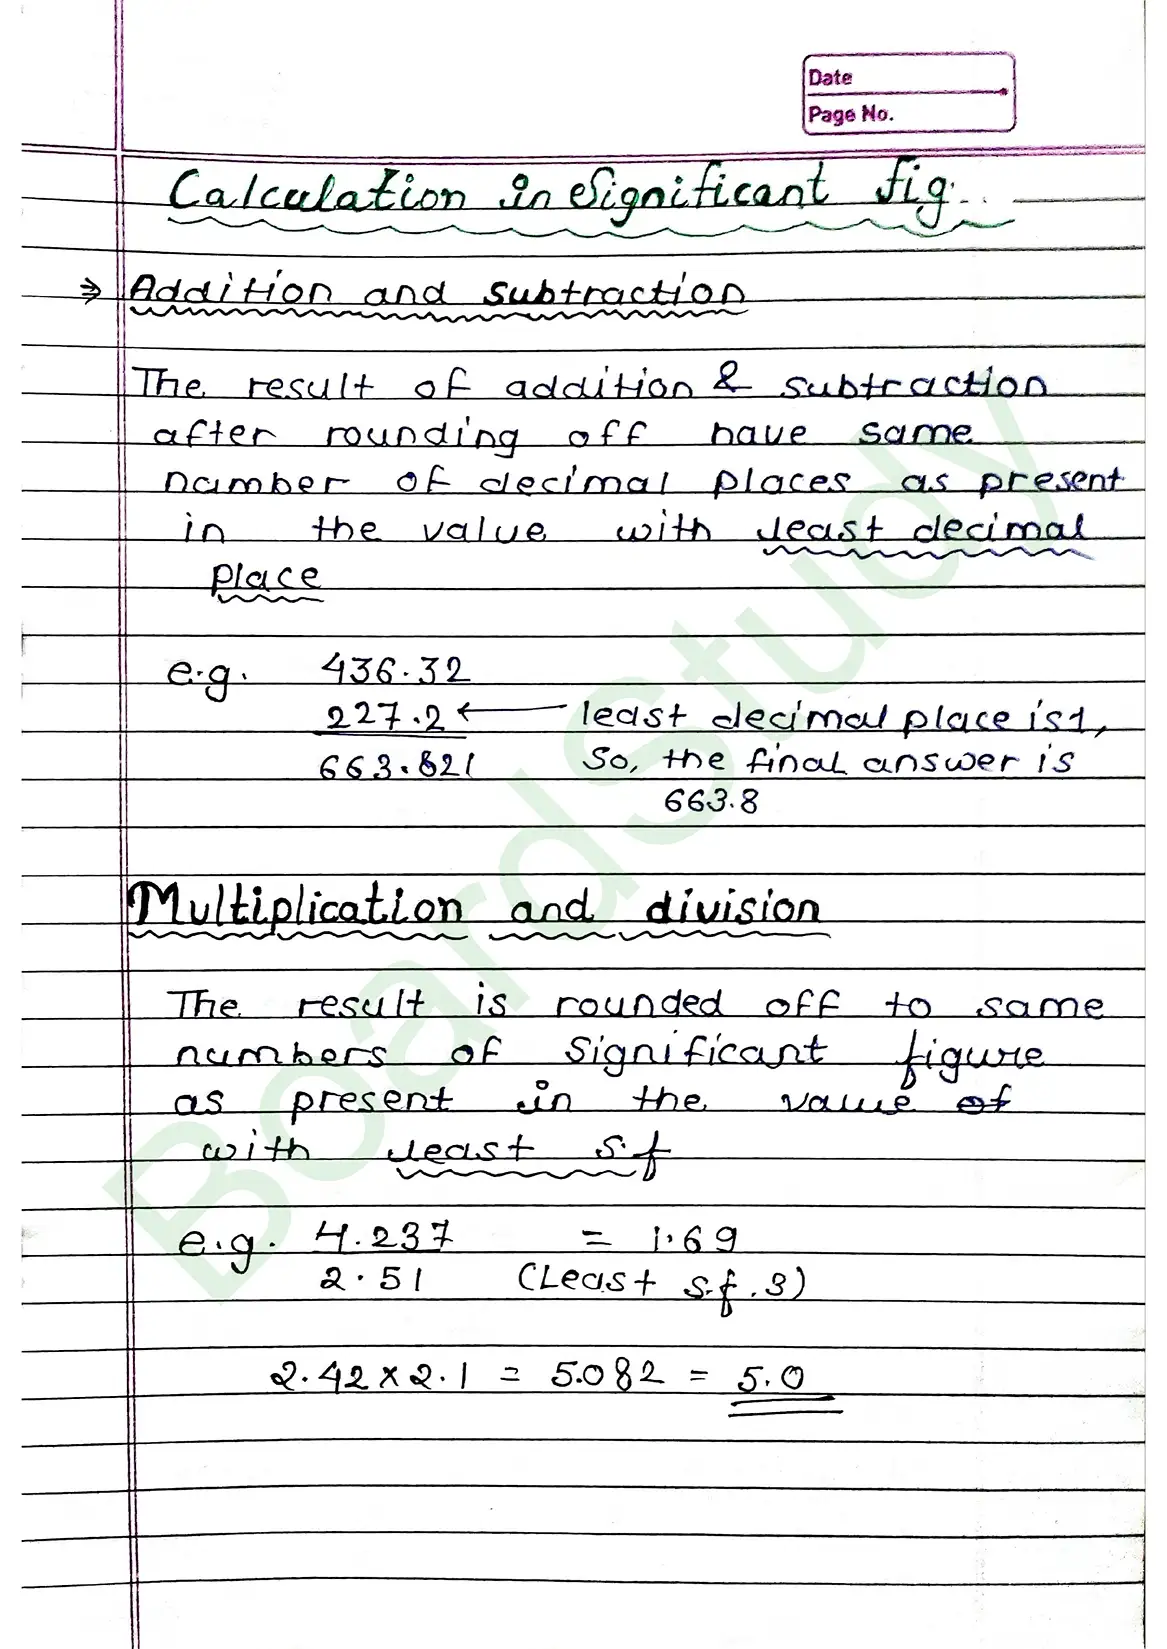 Date
Page No.
Calculation in Significant fig.
⇒ Addition and subtraction
The result of addition & subtraction
after rounding off have same
number of decimal places as present
in the value with least decimal
place
e.g. 436.32
227.2 ← least decimal place is 1,
663.821 So, the final answer is
663.8
Multiplication and division
The result is rounded off to same
numbers of significant figure
as present in the value of
with least s.f
e.g. 4.237 = 1.69
2.51 (Least s.f. 3)
2.42 × 2.1 = 5.082 = 5.0
BoardStudy